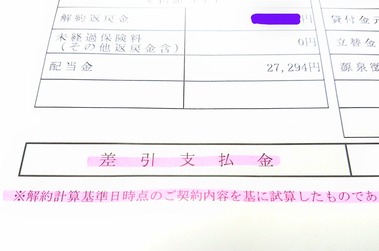 解約返戻金 円 貸付金元
未経過保険料 0円 立替金
(その他返戻金含)
配当金 27,294円 源泉徴
差引支払金
※解約計算基準日時点のご契約内容を基に試算したものであ